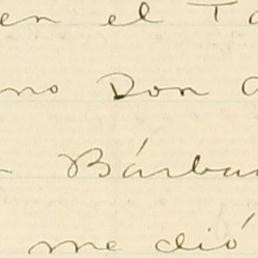 en el Ta
no Don
Bárba
me dió